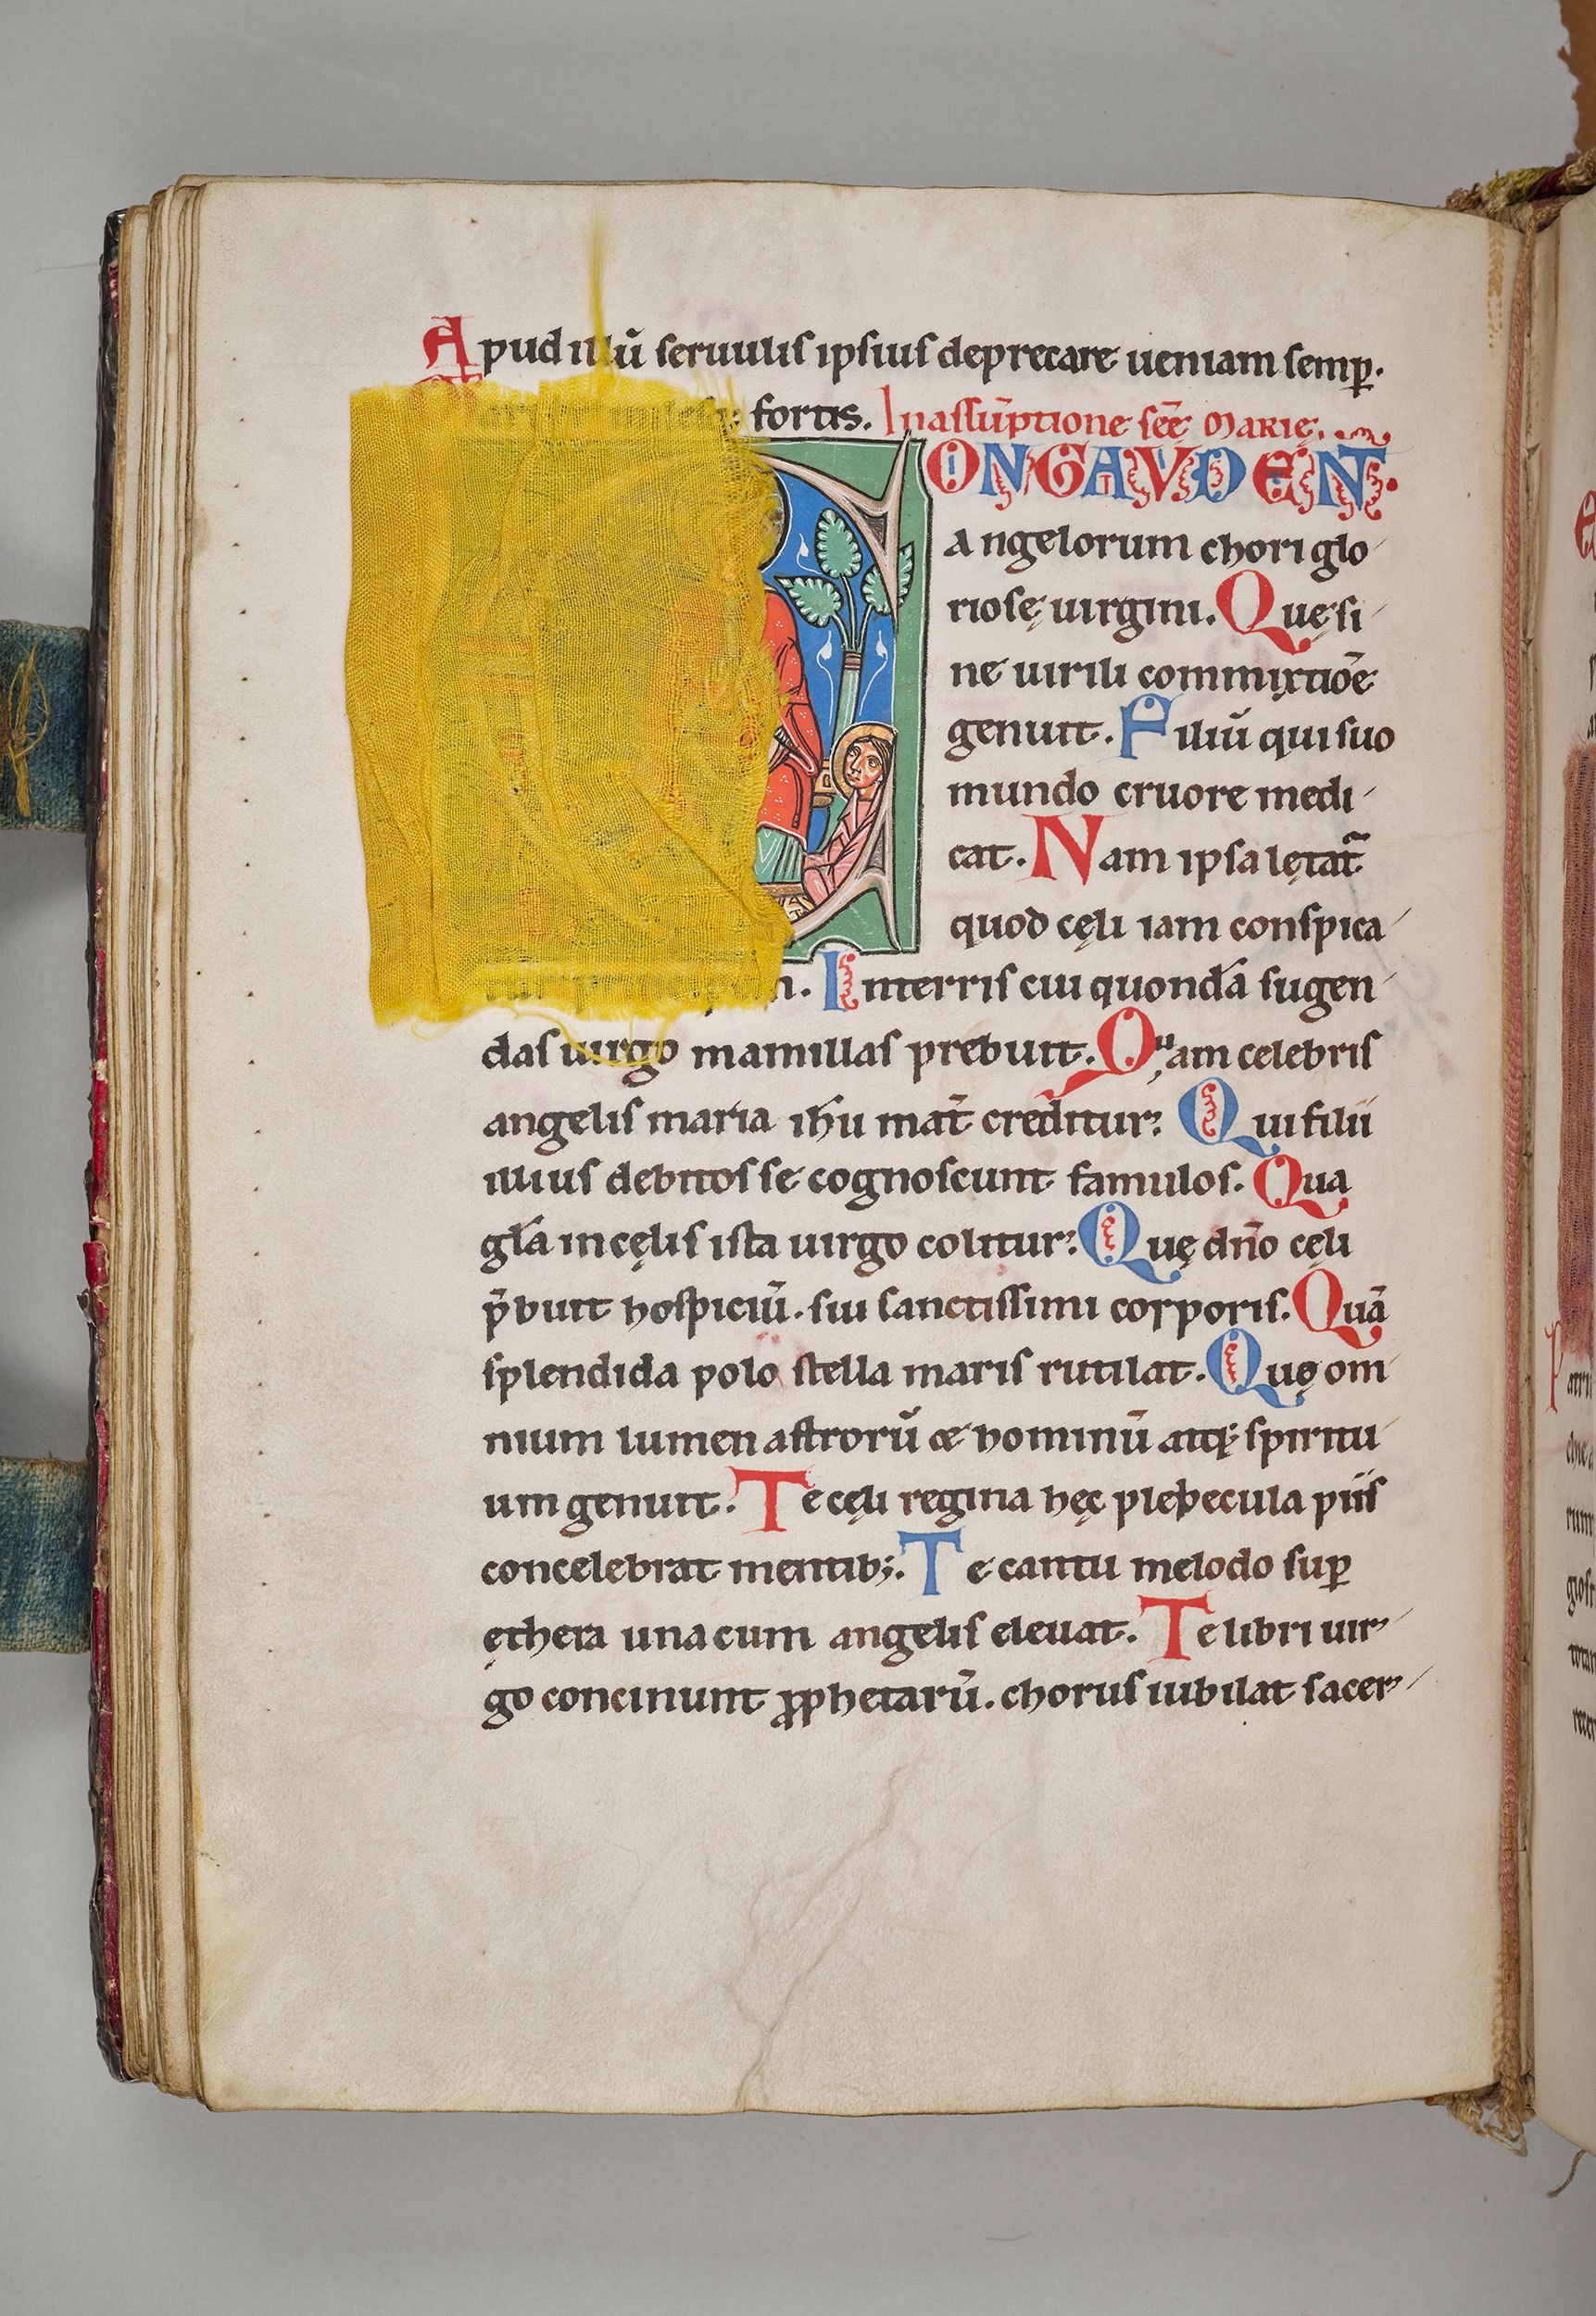 Apud illū seruulis ipsius deprecare ueniam semp̱.
fortis. In assūptione sc̄ē Marię.
ONGAVDENT
angelorum chori glo
riosę uirgini. Quę si
ne uirili commixtiōe
genuit. Filiū qui suo
mundo cruore medi
cat. Nam ipsa lętat᷑
quod cęli iam conspica
In terris cui quondā sugen
das uirgo mamillas prebuit. Quam celebris
angelis maria ih̄u mat̄ creditur: Qui filii
illius debitos se cognoscunt famulos. Qua
gl̄a in cęlis ista uirgo colitur: Quę dn̄o cęli
p̄buit hospiciū. sui sanctissimi corporis. Quā
splendida polo stella maris rutilat. Quę om
nium lumen astrorū & hominū atq; spiritu
um genuit. Te cęli regina hęc plebecula piis
concelebrat mentib;. Te cantu melodo sup̱
ęthera una cum angelis eleuat. Te libri uir
go concinunt ꝓphetarū. chorus iubilat sacer